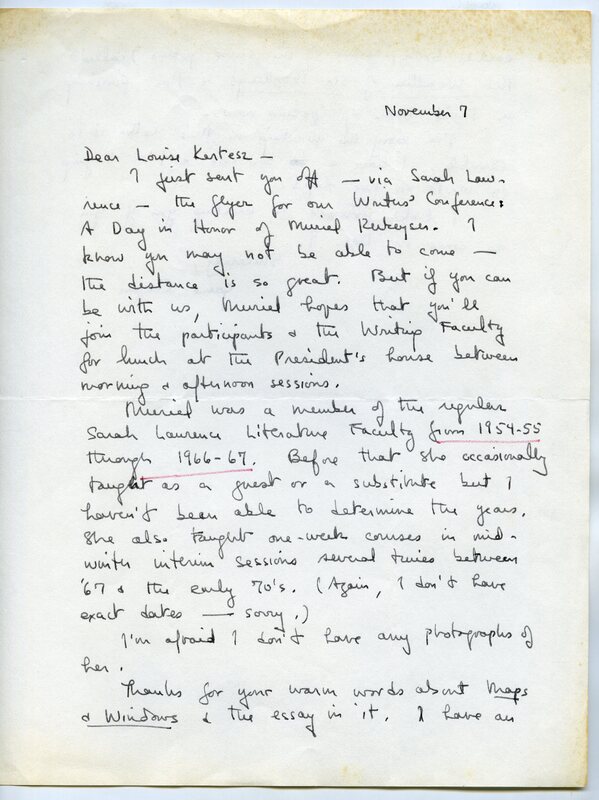 November 7
Dear Louise Kertesz –
I just sent you off – via Sarah Law-
rence – the flyer for our Writers' Conference:
A Day in Honor of Muriel Rukeyser. I
know you may not be able to come –
the distance is so great. But if you can
be with us, Muriel hopes that you'll
join the participants & the Writing Faculty
for lunch at the President's house between
morning & afternoon sessions.
Muriel was a member of the regular
Sarah Lawrence Literature Faculty from 1954-55
through 1966-67. Before that she occasionally
taught as a guest or a substitute but I
haven't been able to determine the years.
She also taught one-week courses in mid-
winter interim sessions several times between
'67 & the early 70's. (Again, I don't have
exact dates — sorry.)
I'm afraid I don't have any photographs of
her.
Thanks for your warm words about Maps
& Windows & the essay in it. I have an